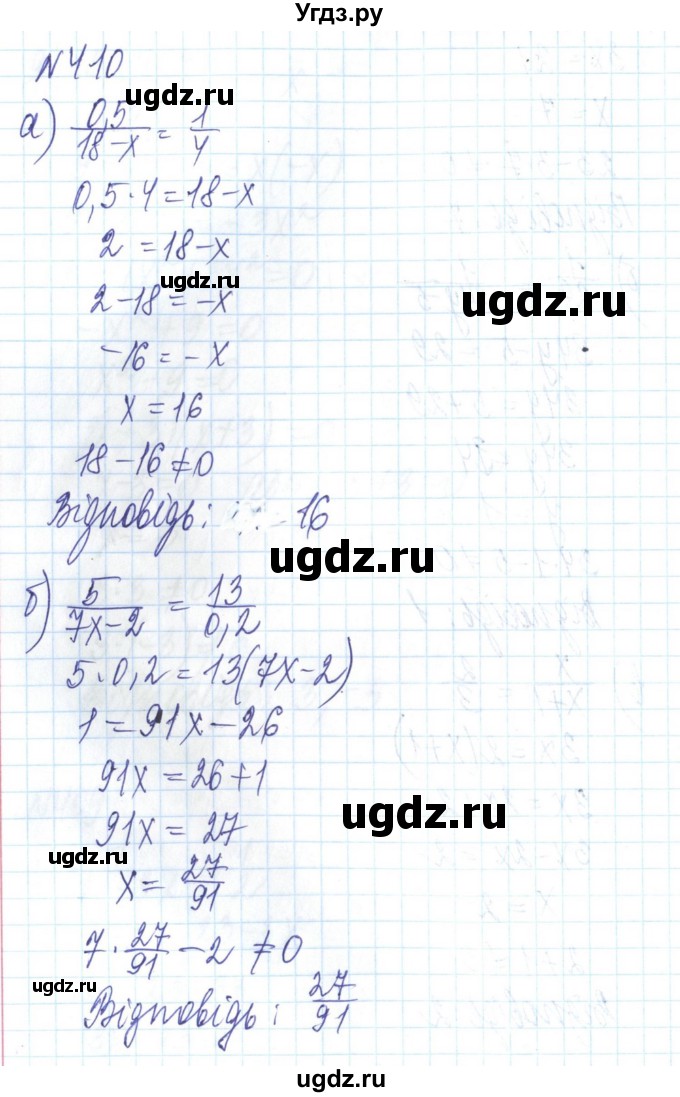 Угдз.ру
N410
ugdz.ru
а) 0,5/(18-x) = 1/4
0,5·4=18-x
2 =18-x
ugdz.ru
2-18=-x
ugdz.ru
-16=-x
x=16
18-16≠0
Відповідь: 16
ugdz.ru
б) 5/(7x-2) = 13/0,2
5·0,2=13(7x-2)
1=91x-26
91x=26+1
ugdz.ru
91x=27
ugdz.ru
x=27/91
7·27/91-2≠0
ugdz.ru
Відповідь: 27/91
ugdz.ru